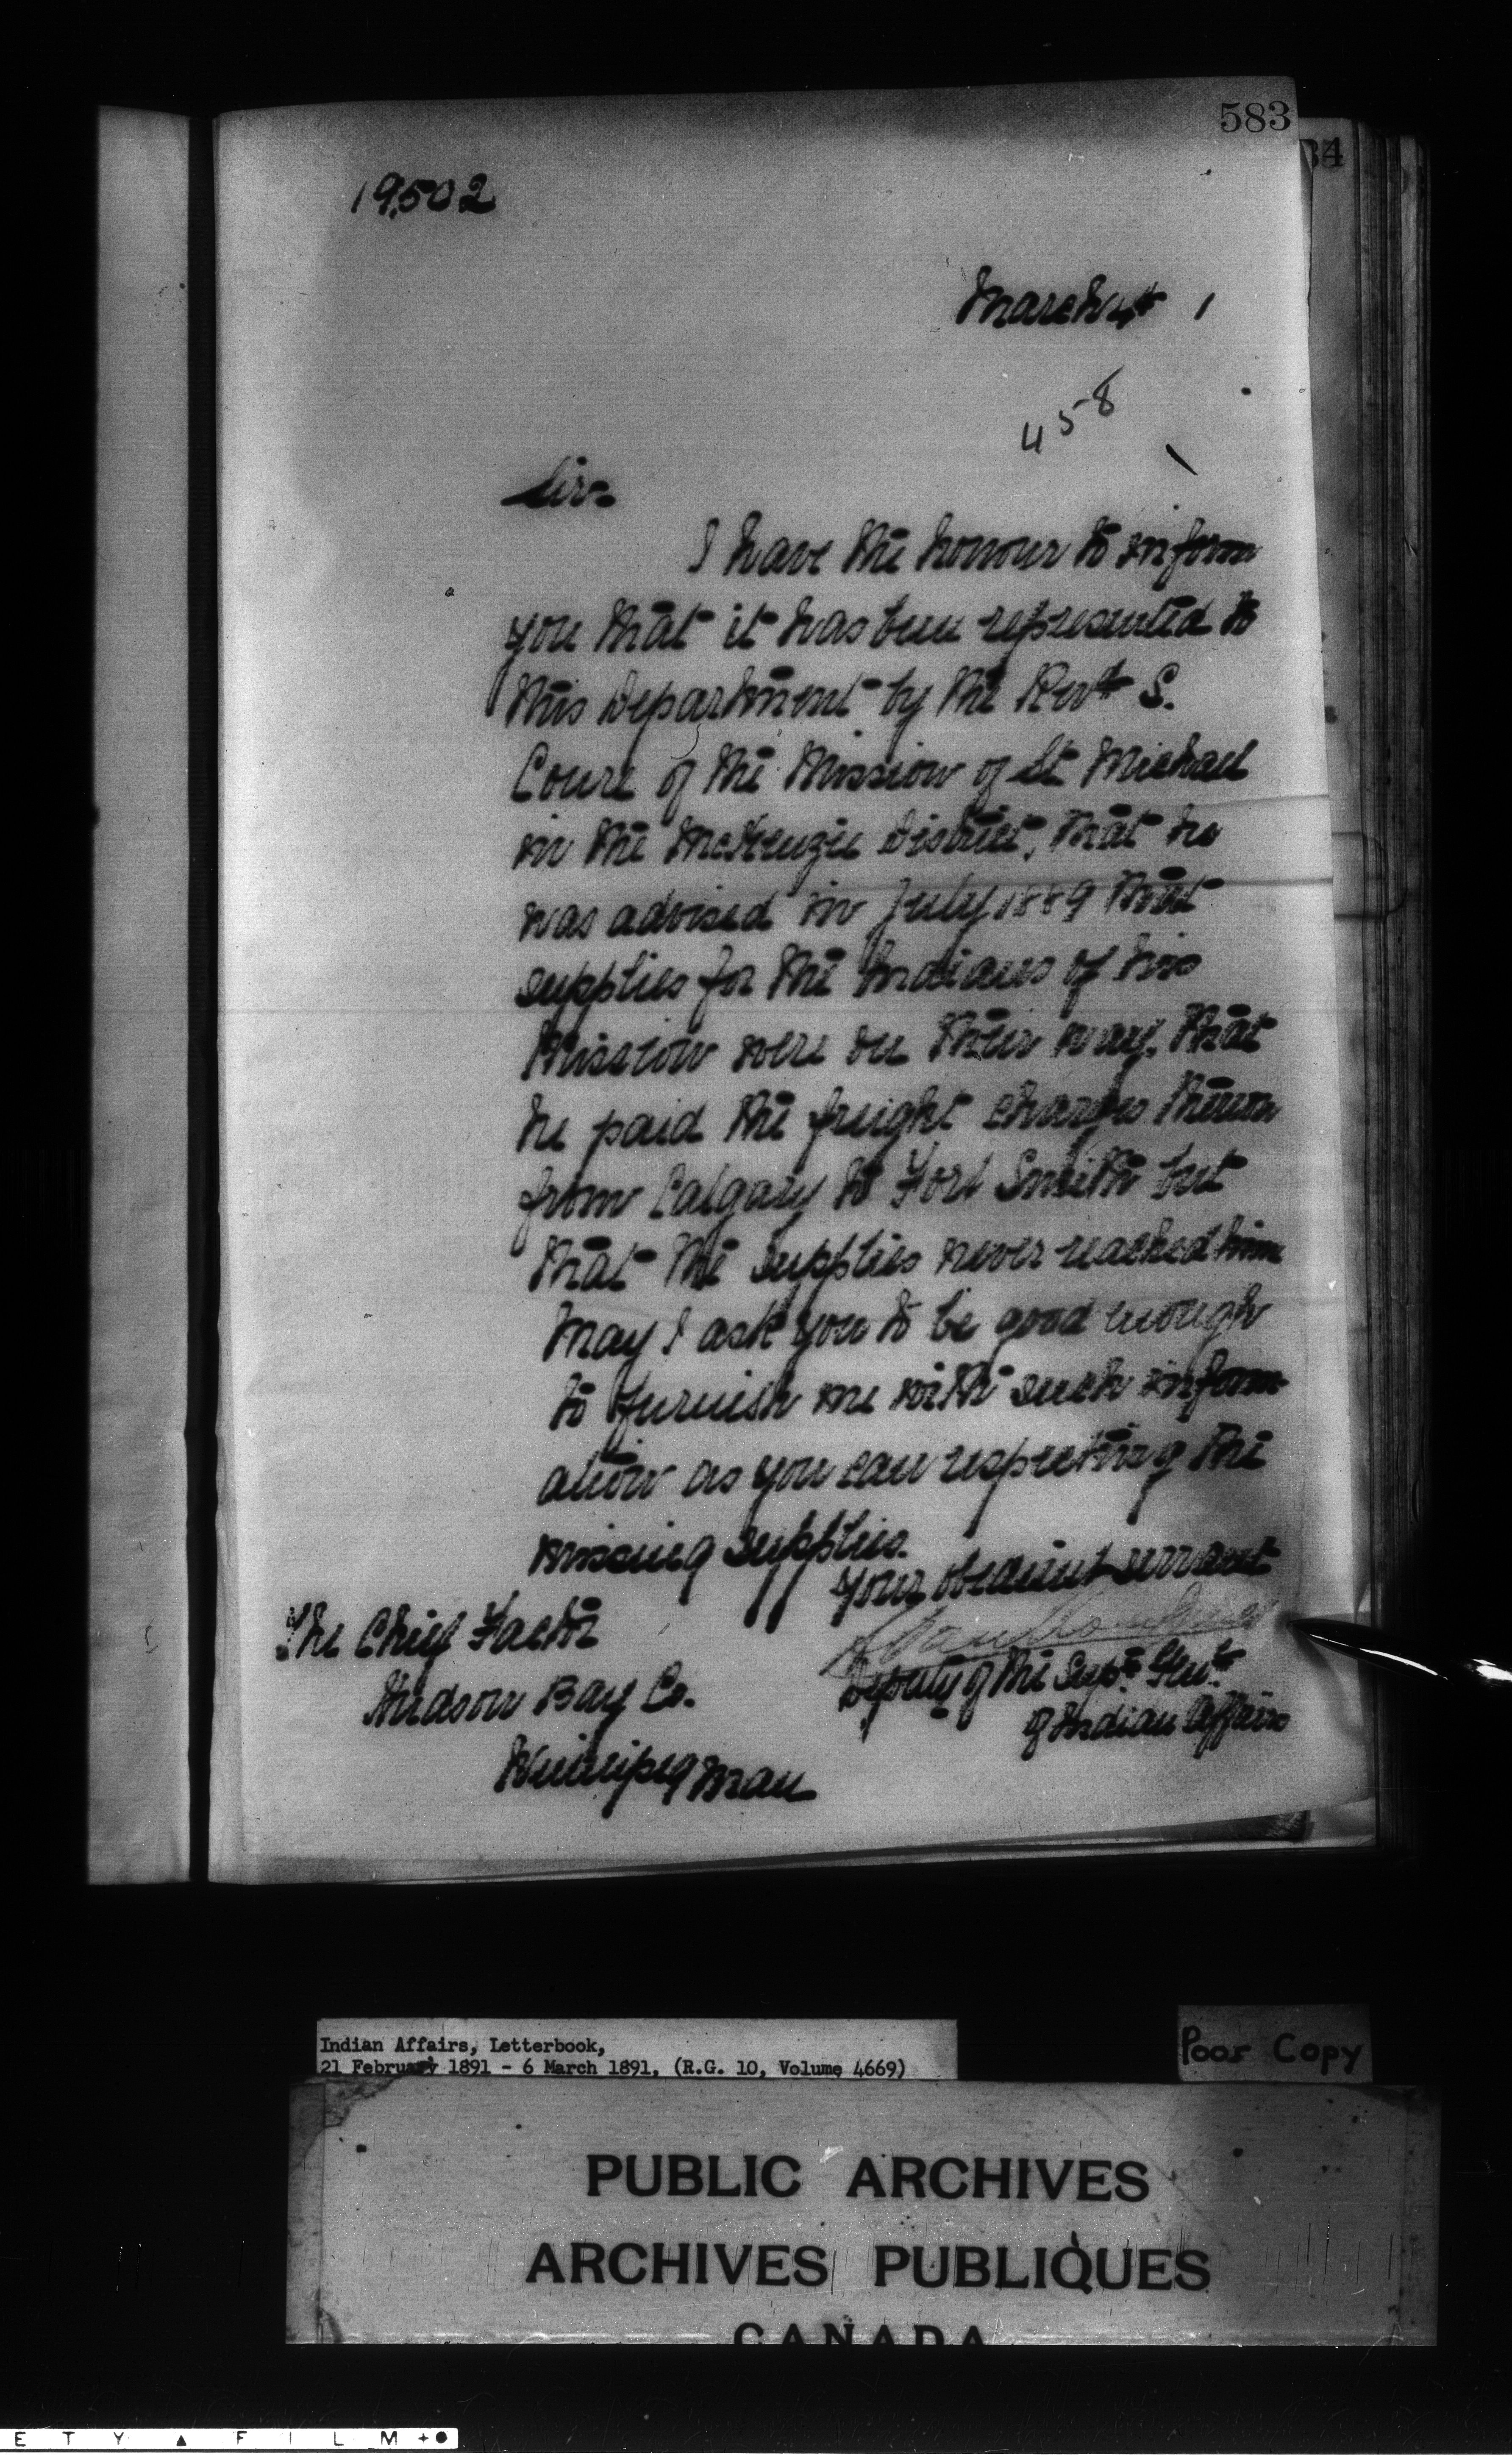 583
34
19,502
March 4th 1
458
Sir,
I have the honour to inform
you that it has been represented to
this Department by the Revd S.
Coure of the Mission of St Michael
in the McKenzie District, that he
was advised in July 1889 that
supplies for the Indians of his
Mission were on their way, that
he paid the freight charges thereon
from Calgary to Fort Smith but
that the supplies never reached him
May I ask you to be good enough
to furnish me with such inform
ation as you can respecting the
missing supplies.
Your obedient servant
Deputy of the Supt. Genl.
of Indian Affairs
The Chief Factor
Hudson Bay Co.
Winnipeg Man
Indian Affairs, Letterbook,
21 February 1891 - 6 March 1891, (R.G. 10, Volume 4669)
Poor Copy
PUBLIC ARCHIVES
ARCHIVES PUBLIQUES
CANADA
ETY ▲ FILM